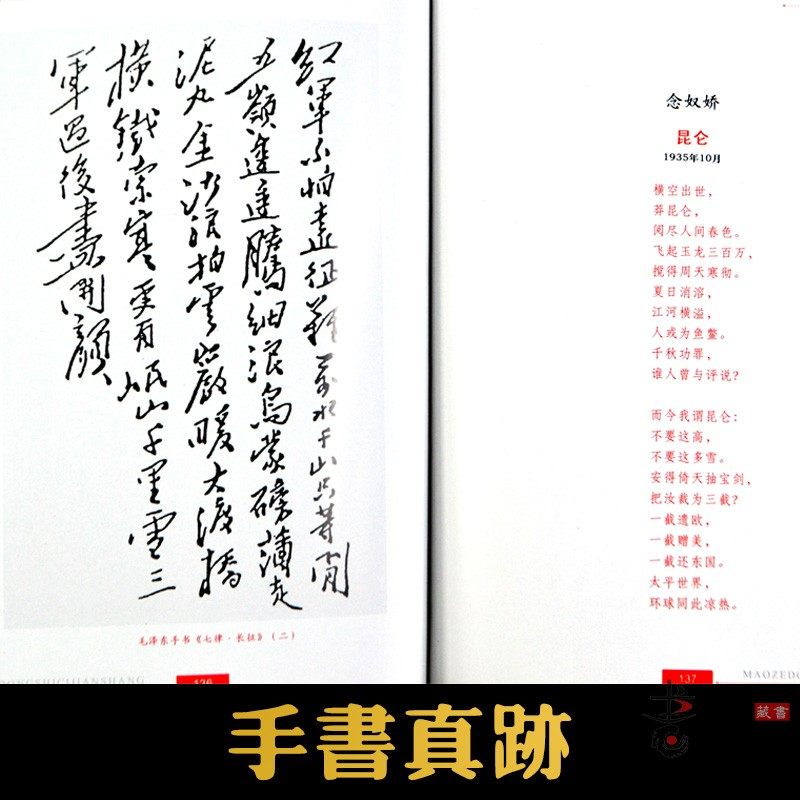 紅軍不怕遠征難萬水千山只等閒
五嶺逶迤騰細浪烏蒙磅礴走
泥丸金沙浪拍雲巖暖大渡橋
橫鐵索寒更喜岷山千里雪三
軍過後盡開顏
毛泽东手书《七律·长征》(二)
ONGSHICIJIANSHANG
136
念奴娇
昆仑
1935年10月
横空出世，
莽昆仑，
阅尽人间春色。
飞起玉龙三百万，
搅得周天寒彻。
夏日消溶，
江河横溢，
人或为鱼鳖。
千秋功罪，
谁人曾与评说？
而今我谓昆仑：
不要这高，
不要这多雪。
安得倚天抽宝剑，
把汝裁为三截？
一截遗欧，
一截赠美，
一截还东国。
太平世界，
环球同此凉热。
137
MAOZEDO
手書真跡
藏書